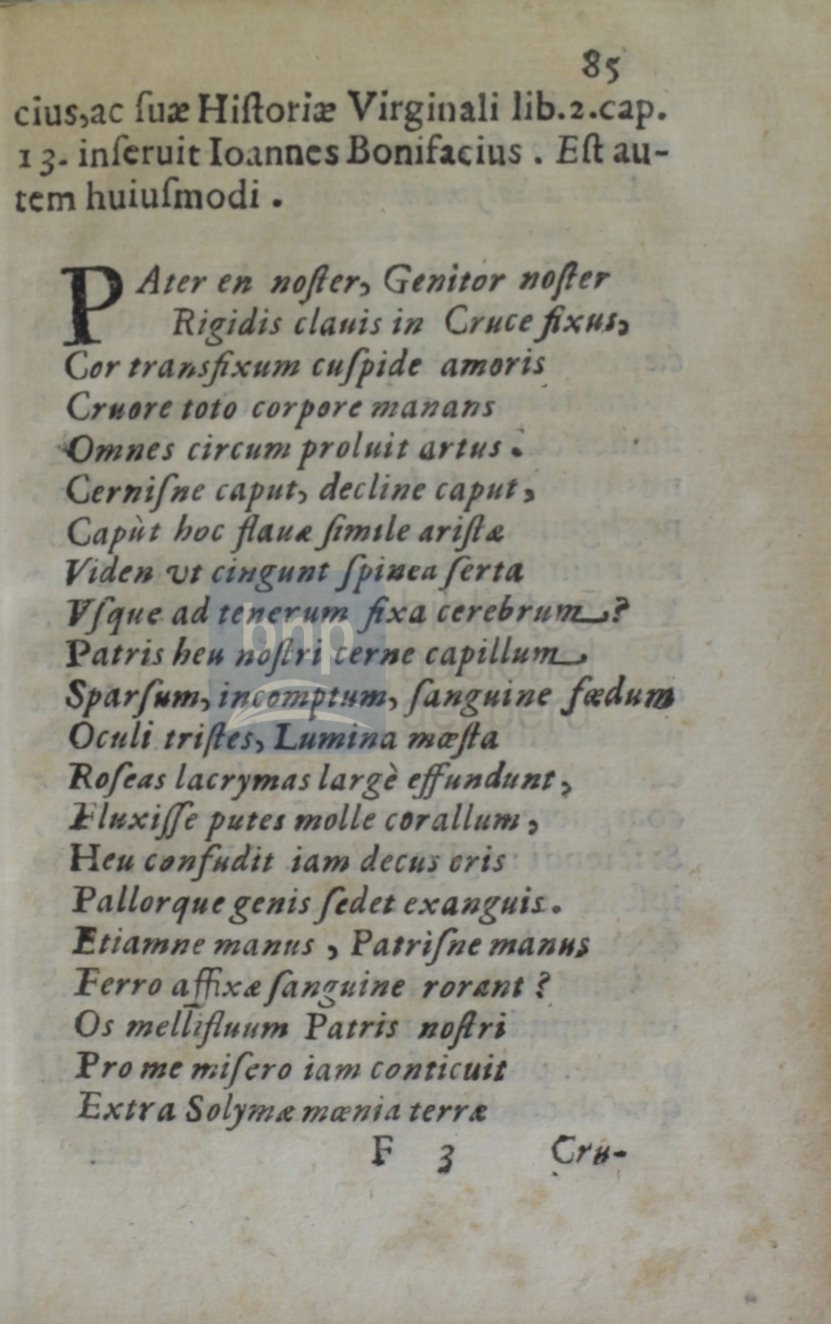 85
cius,ac ſuæ Hiſtoriæ Virginali lib.2.cap.
13. inſeruit Ioannes Bonifacius . Eſt au-
tem huiuſmodi .
PAter en noſter, Genitor noſter
Rigidis clauis in Cruce fixus,
Cor transfixum cuſpide amoris
Cruore toto corpore manans
Omnes circum proluit artus .
Cerniſne caput, decline caput,
Capùt hoc flauæ ſimile ariſtæ
Viden vt cingunt ſpinea ſerta
Vſque ad tenerum fixa cerebrum?
Patris heu noſtri cerne capillum,
Sparſum, incomptum, ſanguine fœdum
Oculi triſtes, Lumina mœſta
Roſeas lacrymas largè effundunt,
Fluxiſſe putes molle corallum,
Heu confudit iam decus oris
Pallorque genis ſedet exanguis.
Etiamne manus , Patriſne manus
Ferro affixæ ſanguine rorant ?
Os mellifluum Patris noſtri
Pro me miſero iam conticuit
Extra Solymæ mœnia terræ
F 3 Cru-
bnp biblioteca nacional del perú